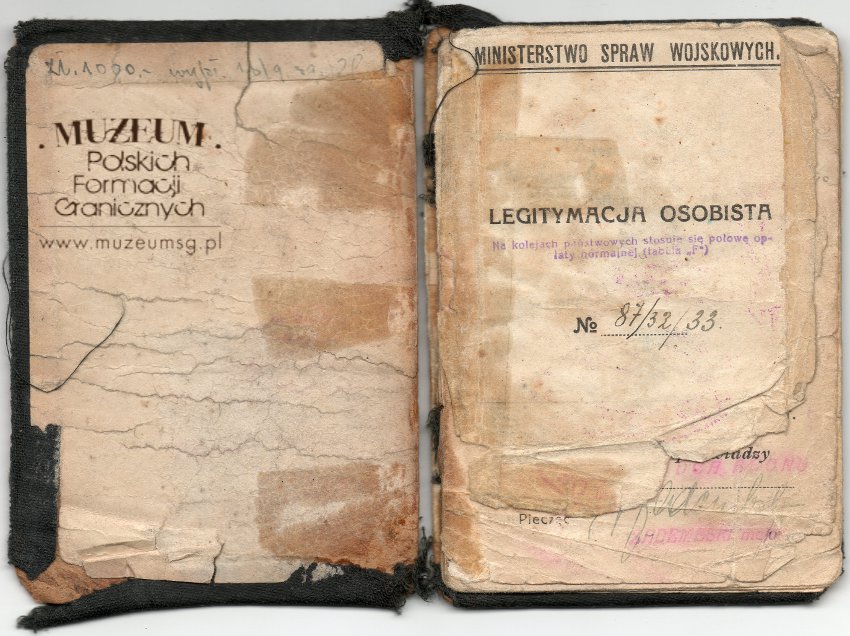 zł. 1000.-
. MUZEUM .
Polskich
Formacji
Granicznych
www.muzeumsg.pl
MINISTERSTWO SPRAW WOJSKOWYCH.
LEGITYMACJA OSOBISTA
Na kolejach państwowych stosuje się połowę op-
łaty normalnej (tabela „F")
№ 87/32/33.
Pieczęć